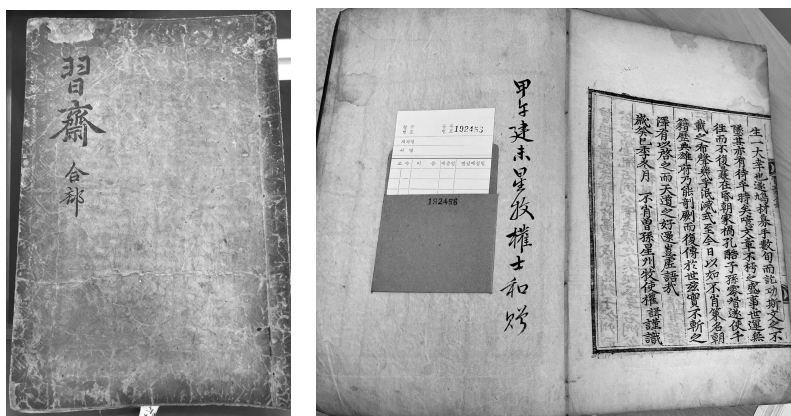 習齋
合部
192456
192456
甲午建未星牧權士和贈
生一大幸也遂鳩材募手數旬而訖功斯文之不
墜其亦有待乎時矣噫文章不朽之盛事世運無
往而不復曩在昏朝家禍孔酷子孫零替遂使千
載之希聲幾乎泯滅式至今日以如不肖策名朝
籍歷典雄府乃能剞劂而復傳於世玆實不斬之
澤有以啓之而天道之好還豈虛語哉
歲癸巳季冬月 不肖曾孫星州牧使權諿謹識